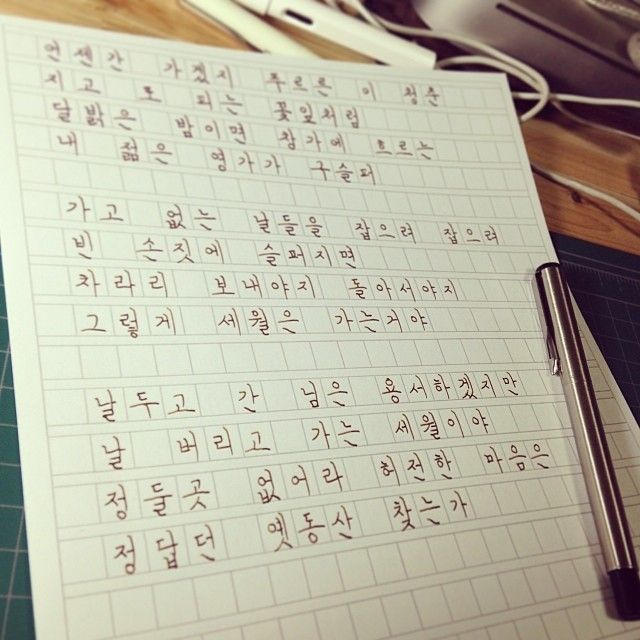 언젠간 가겠지 푸르른 이 청춘
지고 또 피는 꽃잎처럼
달밝은 밤이면 창가에 흐르는
내 젊은 영가가 구슬퍼
가고 없는 날들을 잡으려 잡으려
빈 손짓에 슬퍼지면
차라리 보내야지 돌아서야지
그렇게 세월은 가는거야
날두고 간 님은 용서하겠지만
날 버리고 가는 세월이야
정둘곳 없어라 허전한 마음은
정답던 옛동산 찾는가